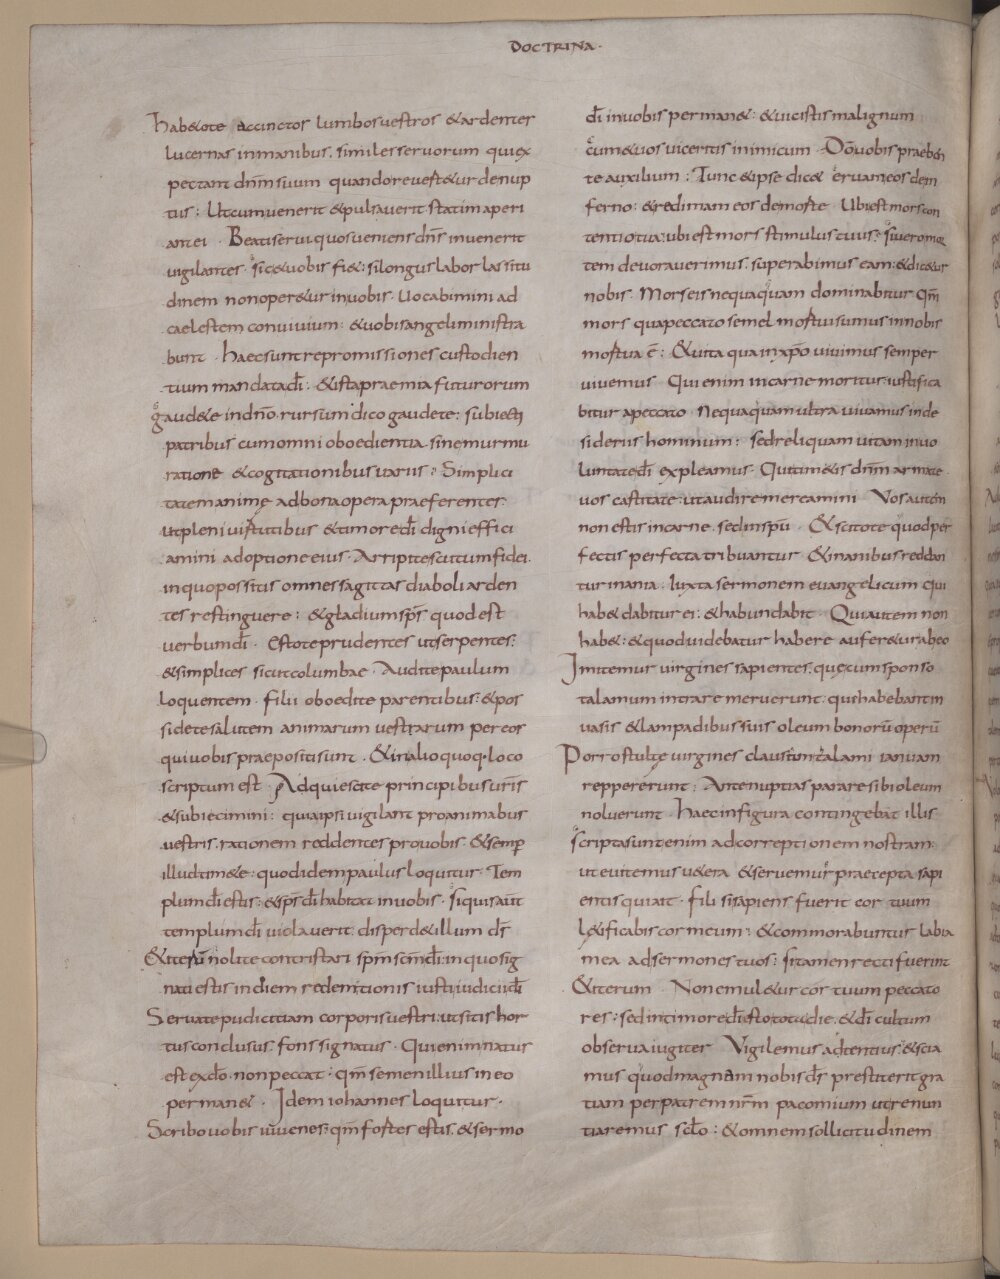 DOCTRINA·
Habetote accinctos lumbos vestros & ardentes
lucernas in manibus. similes servorum qui ex
pectant dn̄m suum quando revertetur de nup
tiis; Ut cum venerit & pulsaverit statim aperi
ant ei · Beati servi quos veniens dn̄s invenerit
vigilantes · sic & vobis fiet; si longus labor lassitu
dinem non operetur in vobis · Vocabimini ad
caelestem convivium; & vobis angeli ministra
bunt · Haec sunt repromissiones custodien
tium mandata dī; & ista praemia futurorum
gaudete in dn̄o. rursum dico gaudete; subiecti
patribus cum omni oboedientia. sine murmu
ratione & cogitationibus variis; Simplici
tatem animę ad bona opera praeferentes·
ut pleni virtutibus & timore dī digni effici
amini adoptione eius · Arripite scutum fidei.
in quo possitis omnes sagittas diaboli arden
tes restinguere; & gladium sp̄s quod est
verbum dī · Estote prudentes ut serpentes;
& simplices sicut columbae · Audite paulum
loquentem · filii oboedite parentibus; & pos
sidete salutem animarum vestrarum per eos
qui vobis praepositi sunt · & in alio quoq· loco
scriptum est · Adquiescite principibus vr̄is
& subiecimini; quia ipsi vigilant pro animabus
vestris. rationem reddentes pro vobis · & semꝑ
illud timete; quod idem paulus loquitur · Tem
plum dī estis; & sp̄s dī habitat in vobis · Si quis aut̄
templum dī violaverit; disperdet illum ds̄
& iterū nolite contristari sp̄m sc̄m dī; in quo sig
nati estis in diem redemtionis iusti iudicii dī
Servate pudicitiam corporis vestri; ut sitis hor
tus conclusus. fons signatus · Qui enim natus
est ex dō. non peccat · qm̄ semen illius in eo
permanet · Idem iohannes loquitur ·
Scribo vobis iuvenes; qm̄ fortes estis. & sermo
dī in vobis permanet; & vicistis malignum
Cum & vos viceritis inimicum · Dō vobis praeben
te auxilium; Tunc & ipse dicet · eruam eos de in
ferno; & redimam eos de morte · Ubi est mors con
tentio tua; ubi est mors stimulus tuus; Si vero mor
tem devoraverimus. superabimus eam; & dicetur
nobis · Mors eis nequaquam dominabitur qm̄
mors qua peccato semel mortui sumus in nobis
mortua ē; & vita qua in xp̄o vivimus semper
vivemus · Qui enim in carne moritur iustifica
bitur a peccato · Nequaquam ultra vivamus in de
sideriis hominum; sed reliquam vitam in vo
luntate dī expleamus · Qui timetis dn̄m armate
vos castitate; ut audire mereamini · Vos autem
non estis in carne. sed in sp̄u · & scitote quod per
fectis perfecta tribuantur & inanibus reddan
tur inania · Iuxta sermonem evangelicum Qui
habet dabitur ei; & habundabit · Qui autem non
habet; & quod videbatur habere auferetur ab eo
Imitemur virgines sapientes. quę cum sponso
talamum intrare meruerunt; qui habebant in
vasis & lampadibus suis oleum bonorū operū
Porro stultę virgines clausum talami ianuam
reppererunt; Ante nuptias parare sibi oleum
noluerunt · Haec in figura contingebant illis
Scripta sunt enim ad correptionem nostram;
ut evitemus vetera & servemur praecepta sapi
entis qui ait · fili si sapiens fuerit cor tuum
letificabis cor meum; & commorabuntur labia
mea ad sermones tuos; si tamen recti fuerint
& iterum · Non emuletur cor tuum peccato
res; sed in timore dī esto tota die. & dī cultum
observa iugiter · Vigilemus adtentius; & scia
mus quod magnam nobis ds̄ prestiterit gra
tiam per patrem nr̄m pacomium ut renun
tiaremus sc̄lo; & omnem sollicitudinem